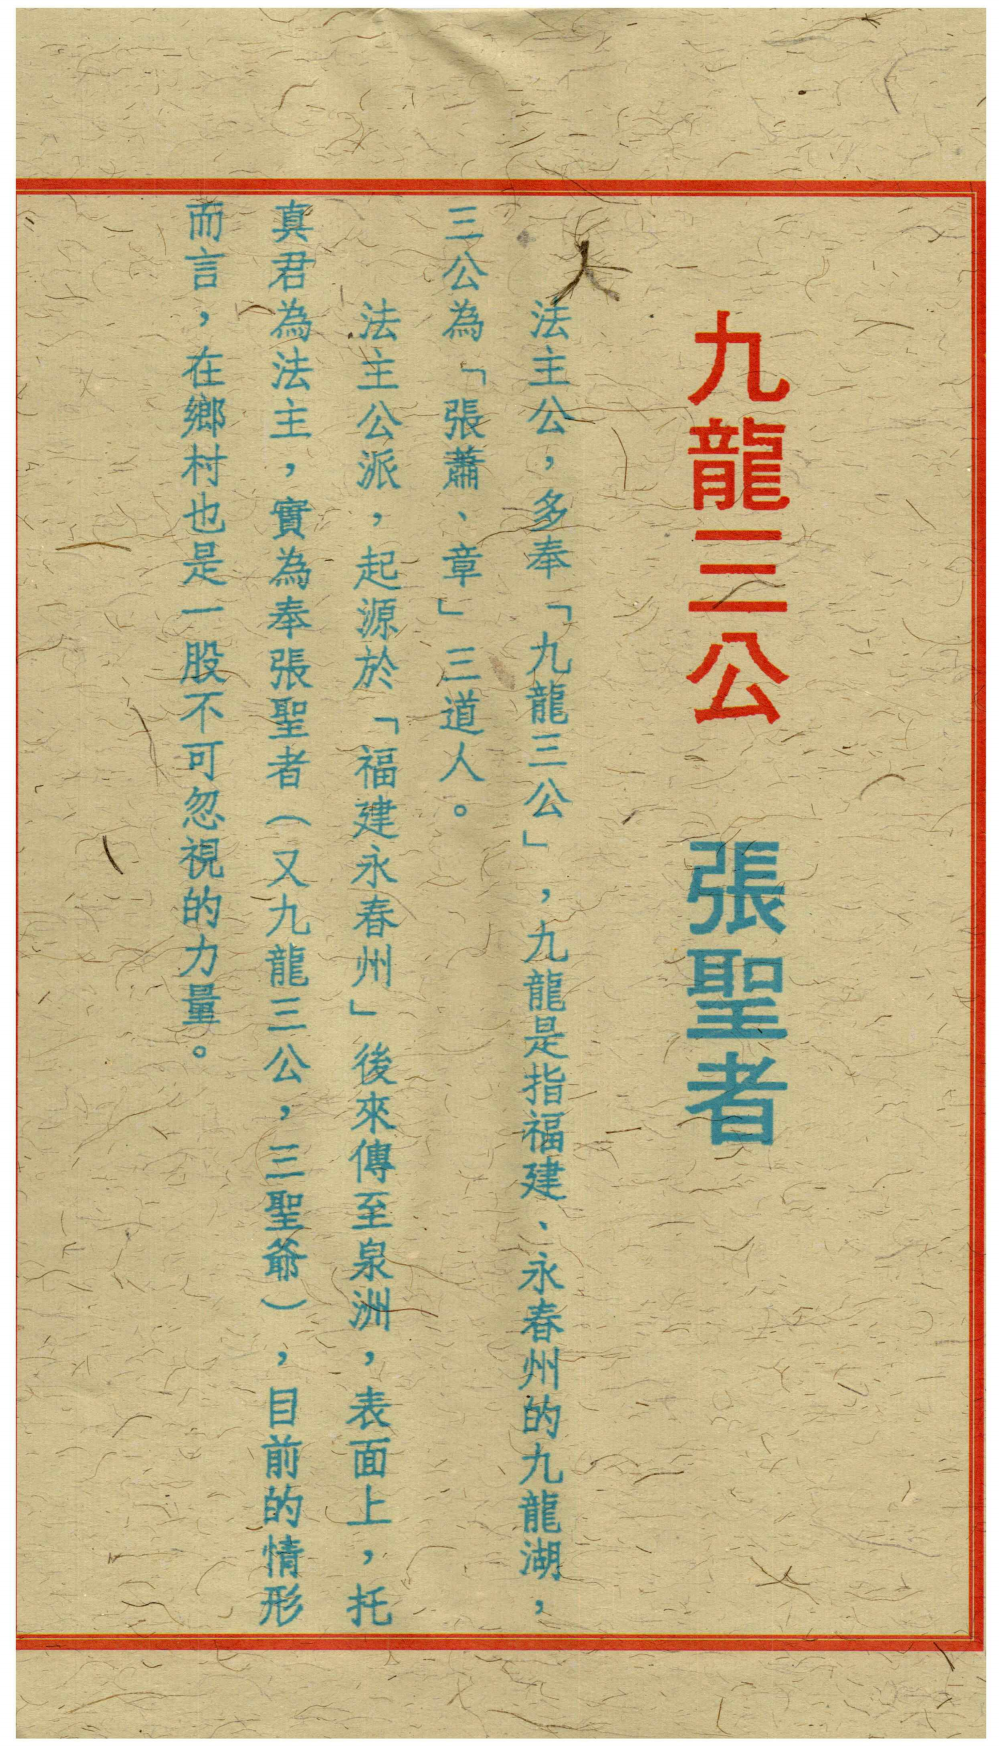 九龍三公　張聖者
法主公，多奉「九龍三公」，九龍是指福建、永春州的九龍湖，
三公為「張蕭、章」三道人。
法主公派，起源於「福建永春州」後來傳至泉洲，表面上，托
真君為法主，實為奉張聖者（又九龍三公，三聖爺），目前的情形
而言，在鄉村也是一股不可忽視的力量。